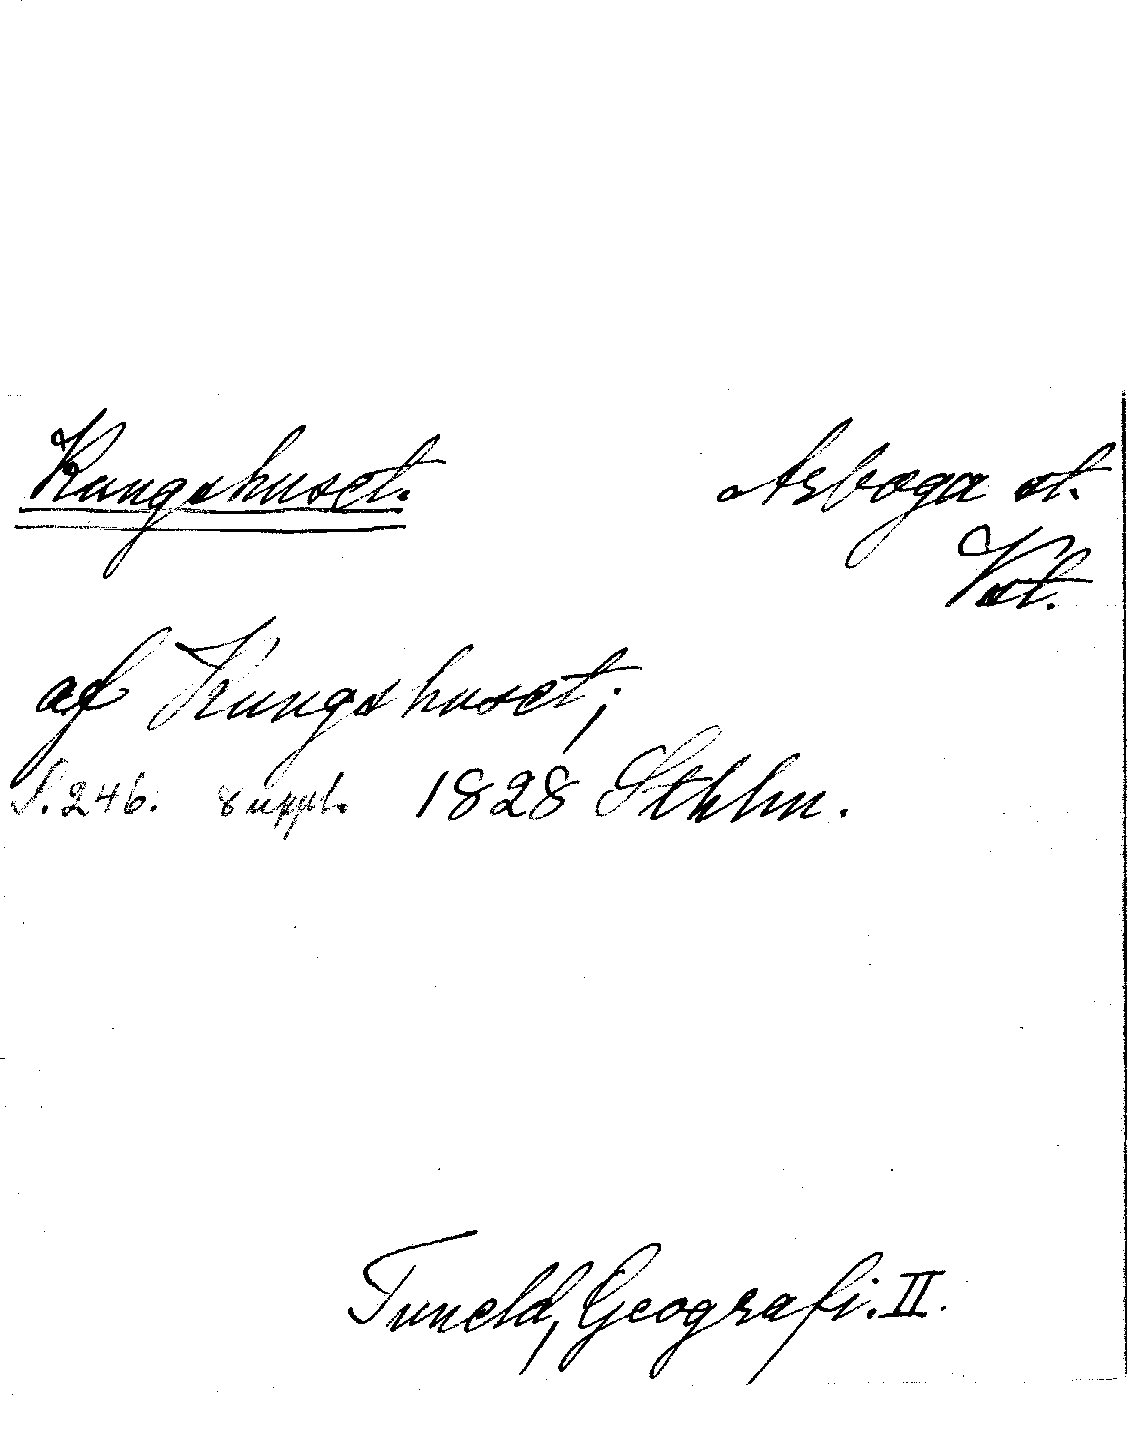 Kungshuset. Arboga st.
Vstl.
af Kungshuset;
S. 246. 8 uppl. 1828 Sthlm.
Tuneld, Geografi. II.